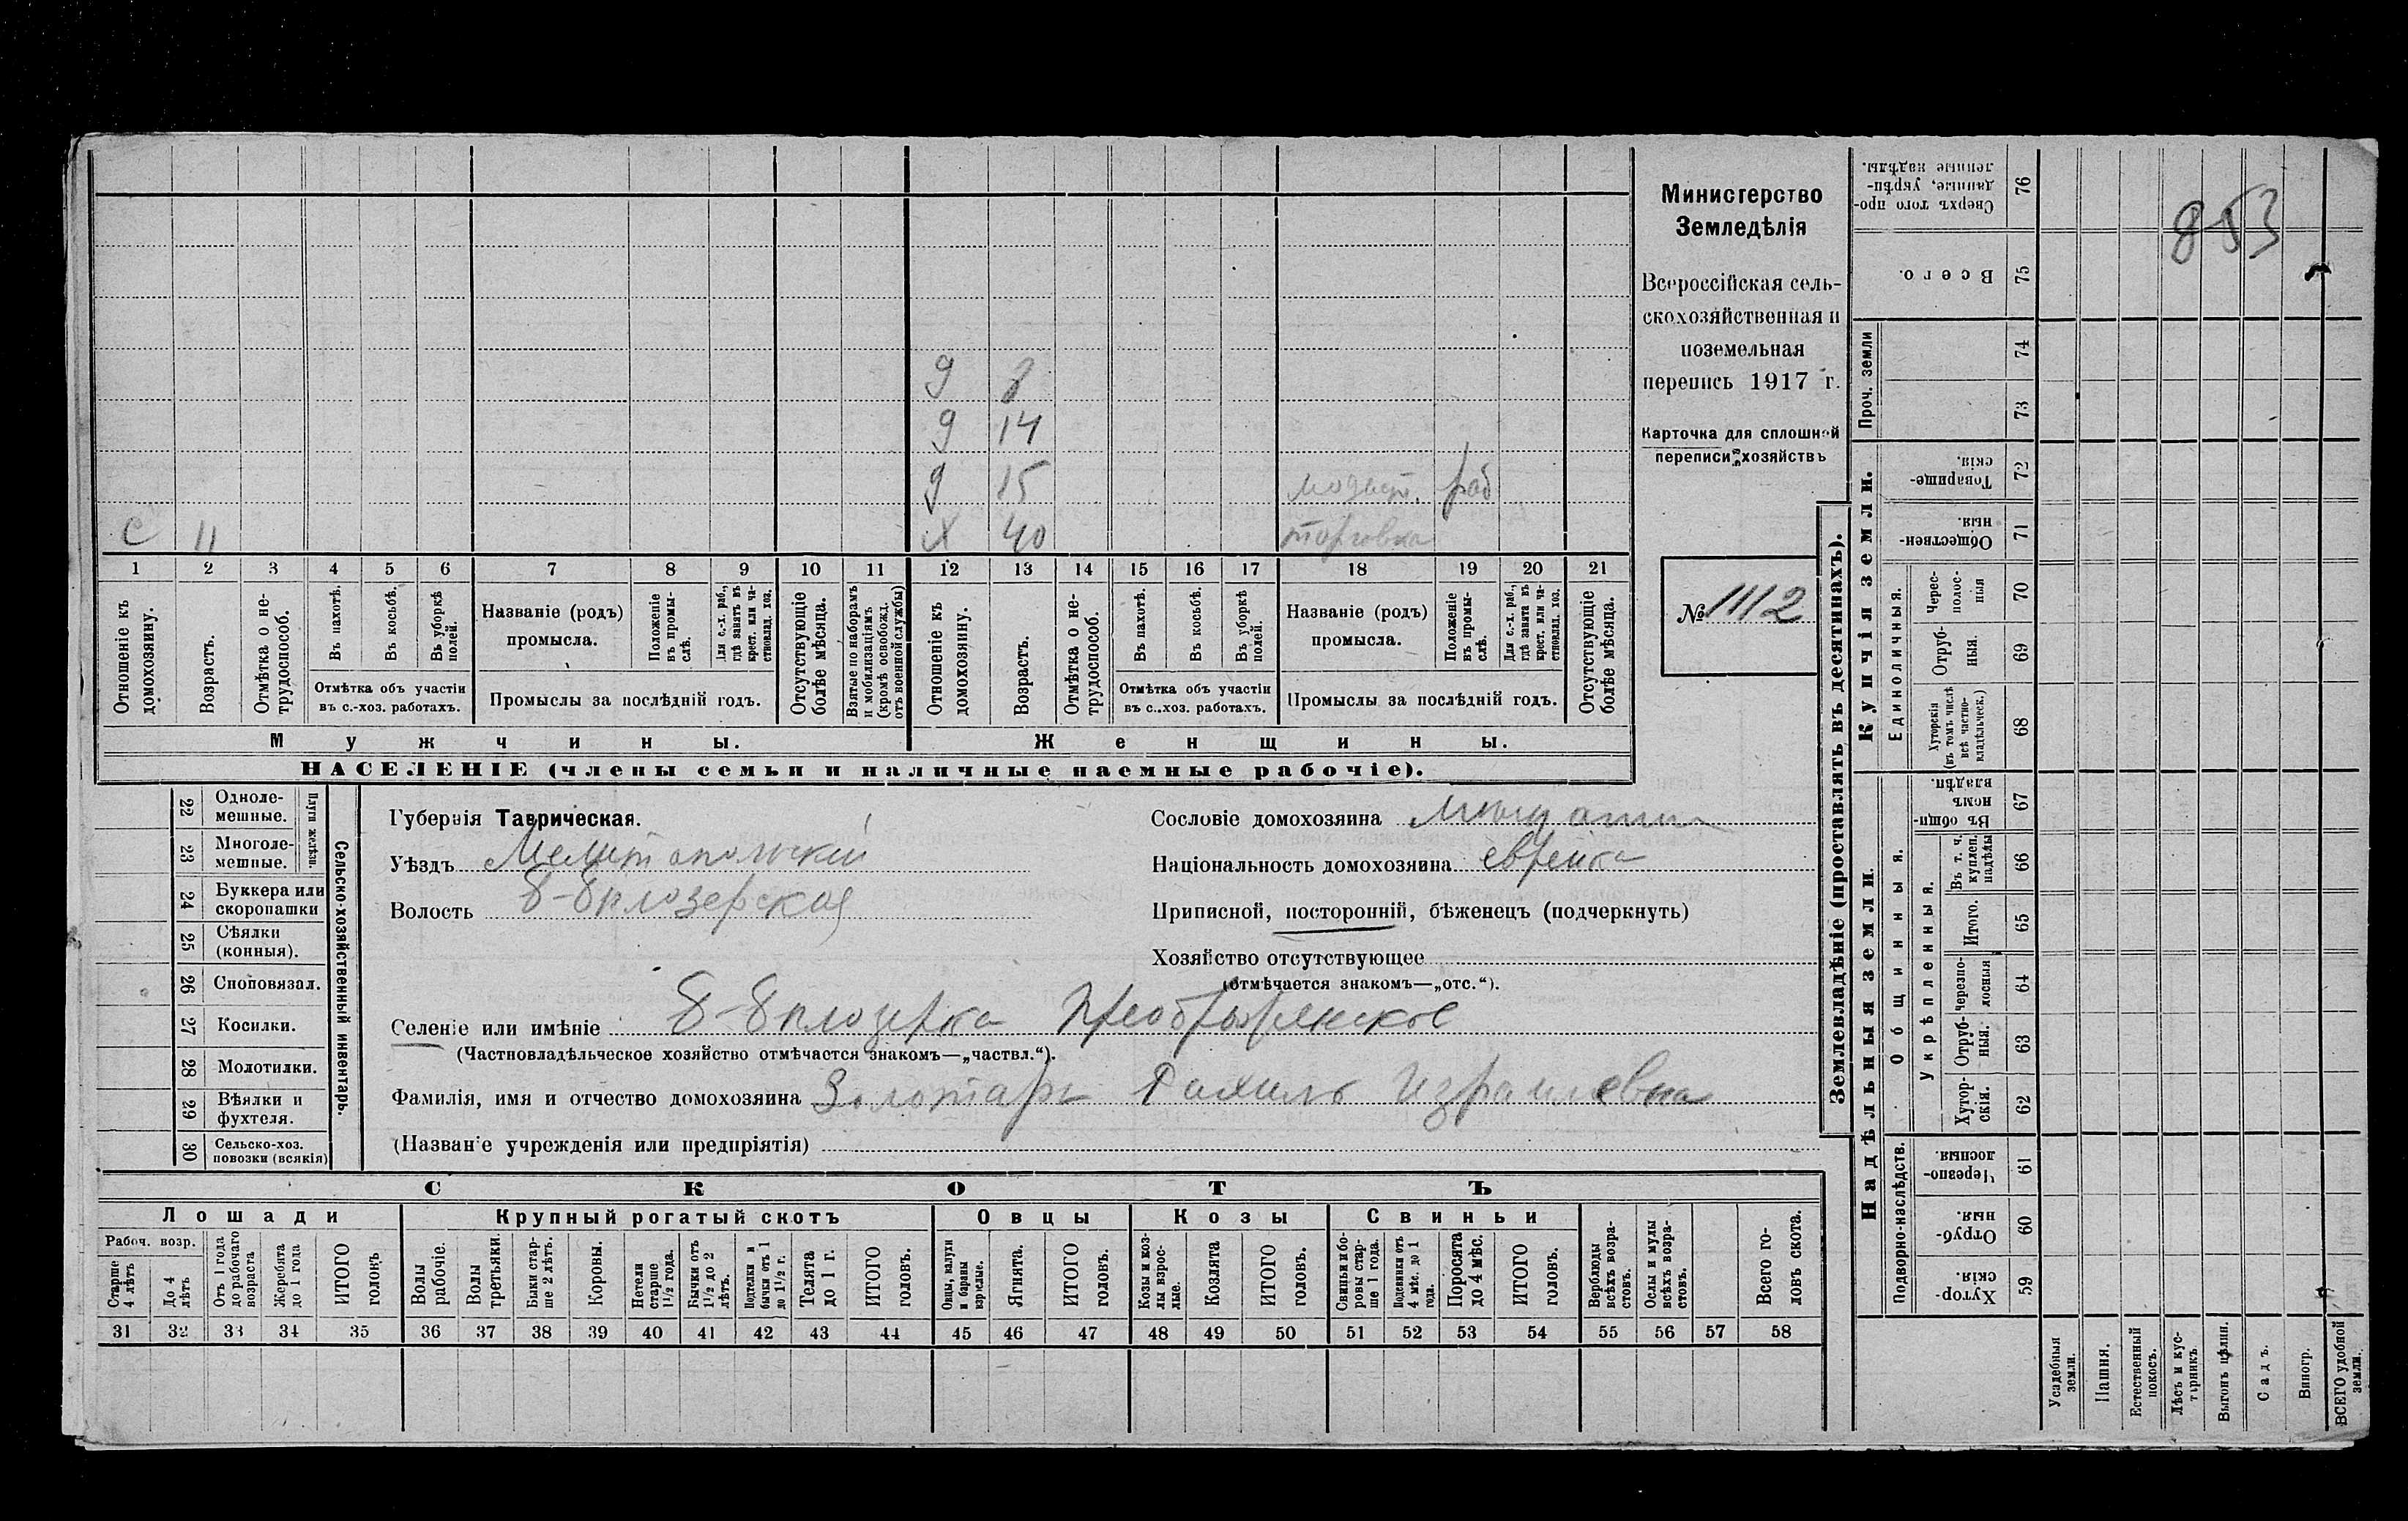 853
Министерство
Земледѣлія
Всероссійская сель-
скохозяйственная и
поземельная
перепись 1917 г.
Карточка для сплошной
переписи хозяйствъ
№ 1112
д 8
д 14
д 15 модист. раб
с 11 х 40 торговка
1 2 3 4 5 6 7 8 9 10 11 12 13 14 15 16 17 18 19 20 21
Отношеніе къ домохозяину.
Возрастъ.
Отмѣтка о не-трудоспособ.
Въ пахотѣ.
Въ косьбѣ.
Въ уборкѣ полей.
Отмѣтка объ участіи
въ с.-хоз. работахъ.
Названіе (родъ)
промысла.
Положеніе въ промы-слѣ.
Для с.-х. раб., гдѣ занятъ въ крест. или ча-стновлад. хоз.
Промыслы за послѣдній годъ.
Отсутствующіе болѣе мѣсяца.
Взятые по наборамъ и мобилизаціямъ (кромѣ освобожд. отъ военной службы)
Отношеніе къ домохозяину.
Возрастъ.
Отмѣтка о не-трудоспособ.
Въ пахотѣ.
Въ косьбѣ.
Въ уборкѣ полей.
Отмѣтка объ участіи
въ с.-хоз. работахъ.
Названіе (родъ)
промысла.
Положеніе въ промы-слѣ.
Для с.-х. раб., гдѣ занята въ крест. или ча-стновлад. хоз.
Промыслы за послѣдній годъ.
Отсутствующіе болѣе мѣсяца.
Мужчины. Женщины.
НАСЕЛЕНІЕ (члены семьи и наличные наемные рабочіе).
Сельско-хозяйственный инвентарь.
Плуги желѣзн.
22 Одноле-мешные.
23 Многоле-мешные.
24 Буккера или скоропашки
25 Сѣялки (конныя).
26 Сноповязал.
27 Косилки.
28 Молотилки.
29 Вѣялки и фухтеля.
30 Сельско-хоз. повозки (всякія)
Губернія Таврическая.
Уѣздъ Мелитопольскій
Волость Б-Бѣлозерская
Сословіе домохозяина
Національность домохозяина еврейка
Приписной, посторонній, бѣженецъ (подчеркнуть)
Хозяйство отсутствующее
(отмѣчается знакомъ—„отс.“).
Селеніе или имѣніе Б-Бѣлозерка Преображенское
(Частновладѣльческое хозяйство отмѣчается знакомъ—„частвл.“).
Фамилія, имя и отчество домохозяина Золотарь Рахиль Израилевна
(Названіе учрежденія или предпріятія)
СКОТЪ
Лошади Крупный рогатый скотъ Овцы Козы Свиньи
Рабоч. возр.
Старше 4 лѣтъ
До 4 лѣтъ
Отъ 1 года до рабочаго возраста
Жеребята до 1 года
ИТОГО головъ
Волы рабочіе.
Волы третьяки.
Быки стар-ше 2 лѣтъ.
Коровы.
Нетели старше 1½ года.
Бычки отъ 1½ до 2 лѣтъ.
Подтелки и бычки отъ 1 до 1½ г.
Телята до 1 г.
ИТОГО головъ.
Овцы, валухи и бараны взрослые.
Ягнята.
ИТОГО головъ.
Козы и коз-лы взрос-лые.
Козлята
ИТОГО головъ.
Свиньи и бо-ровы стар-ше 1 года.
Подсвинки отъ 4 мѣс. до 1 года.
Поросята до 4 мѣс.
ИТОГО головъ.
Верблюды всѣхъ возра-стовъ.
Ослы и мулы всѣхъ возра-стовъ.
Всего го-ловъ скота.
31 32 33 34 35 36 37 38 39 40 41 42 43 44 45 46 47 48 49 50 51 52 53 54 55 56 57 58
Землевладѣніе (проставлять въ десятинахъ).
Купчія земли.
Сверхъ того про-данные, укрѣп-ленные надѣлы. 76
Всего. 75
Проч. земли 74
73
Товарище-скія. 72
Обществен-ныя. 71
Единоличныя.
Черес-полос-ныя 70
Отруб-ныя. 69
Хуторскія (въ томъ числѣ всѣ частно-владѣльческ.) 68
Надѣльныя земли
Общинныя.
Въ общи-номъ владѣн. 67
Укрѣпленныя.
Въ т. ч. куплен. надѣлы 66
Итого. 65
Черезпо-лосныя 64
Отруб-ныя. 63
Хутор-скія. 62
Подворно-наслѣдств.
Черезпо-лосныя. 61
Отруб-ныя. 60
Хутор-скія. 59
Усадебныя земли.
Пашня.
Естественный покосъ.
Лѣсъ и кус-тарникъ
Выгонъ цѣлин.
Садъ.
Виногр.
ВСЕГО удобной земли.